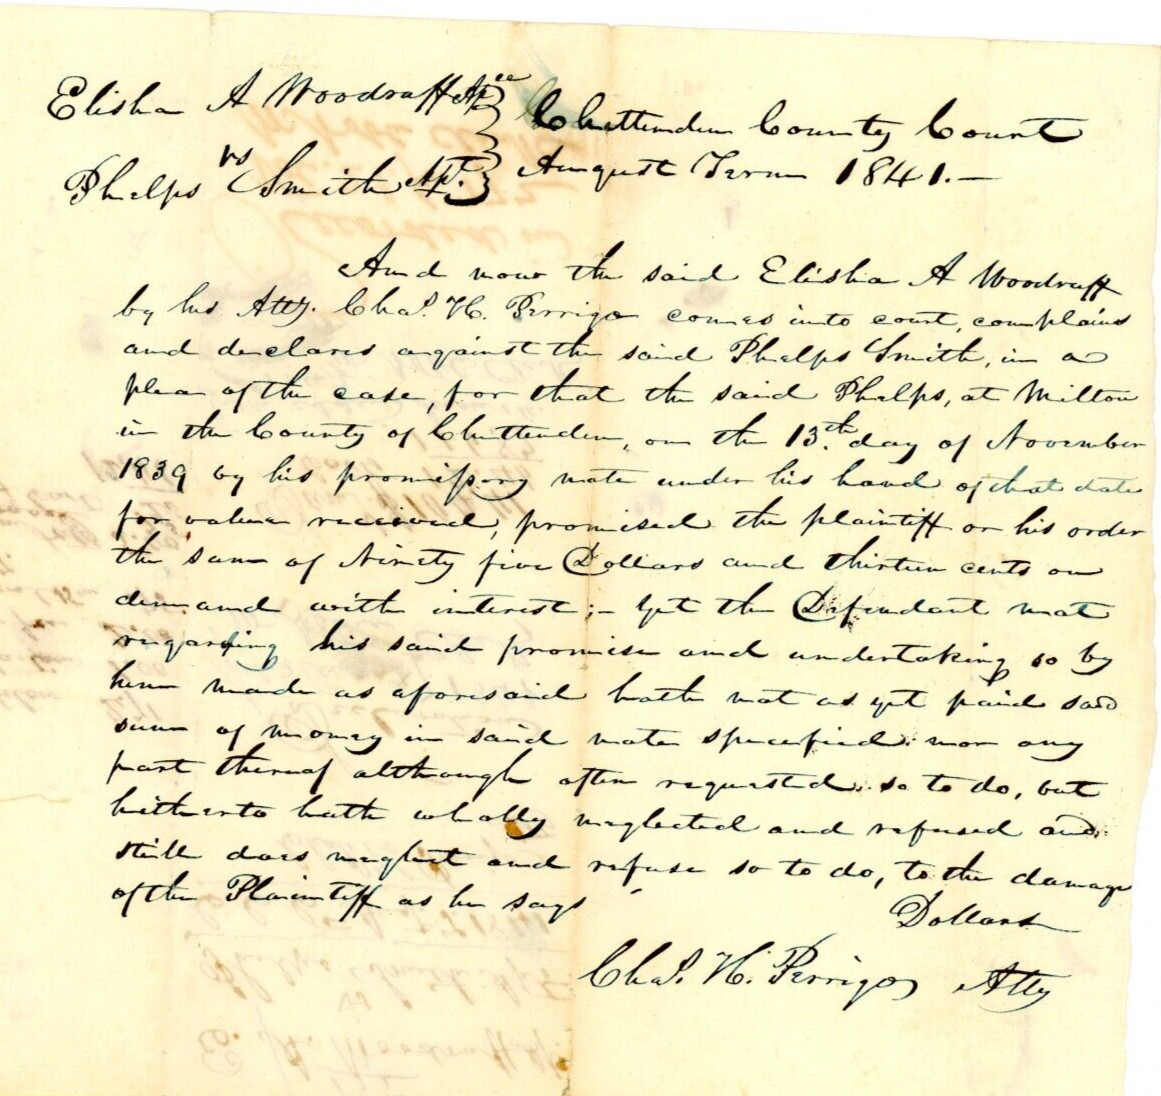 Elisha A Woodruff Apee } Chittenden County Court
vs
Phelps Smith Apt. } August Term 1841.—
And now the said Elisha A Woodruff
by his Atty. Chas. H. Perrigo comes into court, complains
and declares against the said Phelps Smith, in a
plea of the case, for that the said Phelps, at Milton
in the County of Chittenden, on the 13th day of November
1839 by his promissory note under his hand of that date
for value received, promised the plaintiff or his order
the sum of Ninety five Dollars and thirteen cents on
demand with interest;— yet the Defendant not
regarding his said promise and undertaking so by
him made as aforesaid hath not as yet paid said
sum of money in said note specified nor any
part thereof although often requested so to do, but
hitherto hath wholly neglected and refused and
still does neglect and refuse so to do, to the damage
of the Plaintiff as he says Dollars
Chas. H. Perrigo Atty